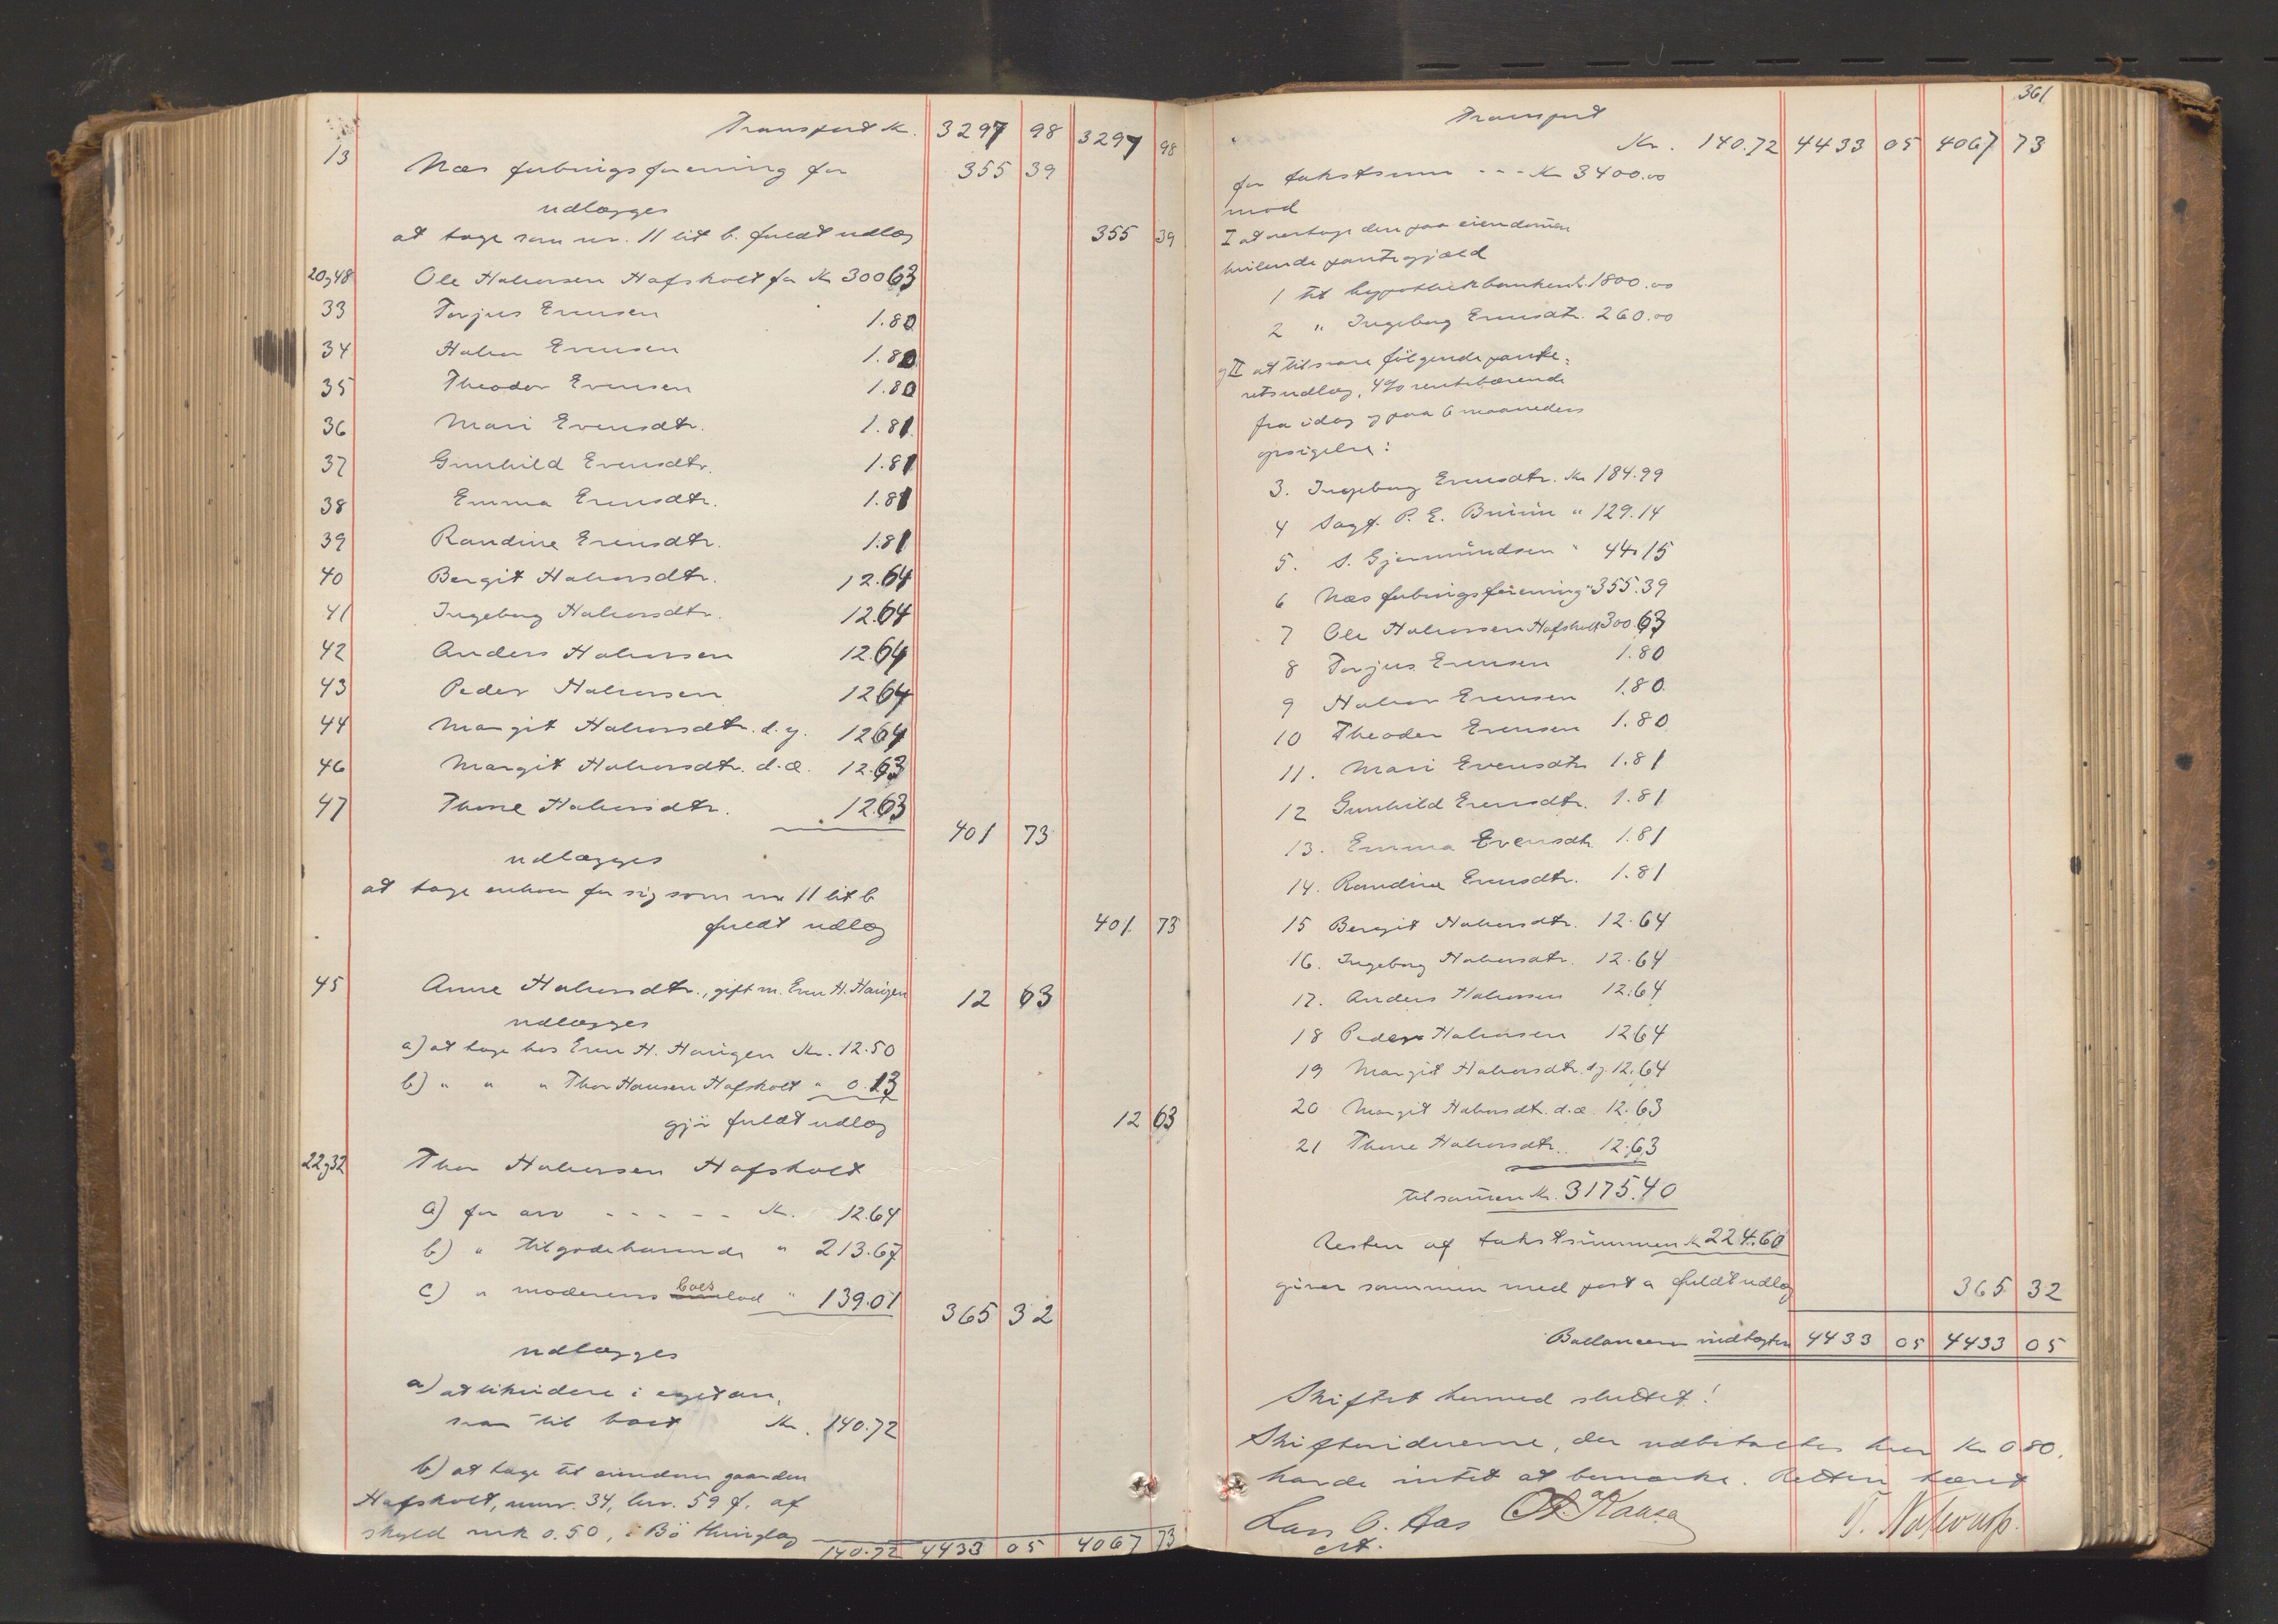 Transport Kr. 3297 98 3297 98
13 Næs forbrugsforening for 355 39
udlægges
at tage som nr. 11 lit b. fuldt udlæg 355 39
20 og 48 Ole Halvorsen Hafsholt for Kr 300 63
33 Torjus Evensen 1.80
34 Halvor Evensen 1.80
35 Theodor Evensen 1.80
36 Mari Evensdtr. 1.81
37 Gunhild Evensdtr. 1.81
38 Emma Evensdtr. 1.81
39 Randine Evensdtr. 1.81
40 Bergit Halvorsdtr. 12.64
41 Ingeborg Halvorsdtr. 12.64
42 Anders Halvorsen 12.64
43 Peder Halvorsen 12.64
44 Margit Halvorsdtr. d.y. 12.64
46 Margit Halvorsdtr. d.æ. 12.63
47 Thone Halvorsdtr. 12.63
401 73
udlægges
at tage enhver for sig som nr 11 lit b
fuldt udlæg 401 73
45 Anne Halvorsdtr., gift m. Even H. Haugen 12 63
udlægges
a) at tage hos Even H. Haugen Kr. 12.50
b) " " " Thor Hansen Hafsholt " 0.13
gjør fuldt udlæg 12 63
22 og 32 Thor Halvorsen Hafsholt
a) for arv - - - - - Kr. 12.64
b) " tilgodehavende " 213.67
c) " moderens boeslod " 139.01 365 32
udlægges
a) at likvidere i eget an-
svar til boet Kr. 140.72
b) at tage til eiendom gaarden
Hafsholt, mnr. 34, lnr. 59 f. af
skyld mk 0.50, i Bø thinglag
140.72 4433 05 4067 73
361
Transport
Kr. 140.72 4433 05 4067 73
for takstsum - - - Kr 3400.00
mod
I at overtage den paa eiendommen
hvilende pantegjæld
1 til hypothekbanken kr. 1800.00
2 " Ingeborg Evensdtr. 260.00
og II at tilsvare følgende pante-
retsudlæg, 4% rentebærende
fra idag og paa 6 maaneders
opsigelse:
3. Ingeborg Evensdtr. Kr 184.99
4 Sagf. P. E. Bruun " 129.14
5. S. Gjermundsen " 44.15
6 Næs forbrugsforening " 355.39
7 Ole Halvorsen Hafsholt 300.63
8 Torjus Evensen 1.80
9 Halvor Evensen 1.80
10 Theodor Evensen 1.80
11. Mari Evensdtr 1.81
12 Gunhild Evensdtr. 1.81
13. Emma Evensdtr. 1.81
14. Randine Evensdtr. 1.81
15 Bergit Halvorsdtr. 12.64
16. Ingeborg Halvorsdtr. 12.64
17. Anders Halvorsen 12.64
18 Peder Halvorsen 12.64
19 Margit Halvorsdtr. d.y. 12.64
20 Margit Halvorsdtr. d.æ. 12.63
21 Thone Halvorsdtr. 12.63
tilsammen Kr. 3175.40
Resten af takstsummen Kr 224.60
giver sammen med post a fuldt udlæg 365 32
Ballancerer indtægten 4433 05 4433 05
Skiftet hermed sluttet!
Skiftevidnerne, der udbetaltes hver Kr 0.80,
havde intet at bemærke. Retten hævet
Lars O. Aas